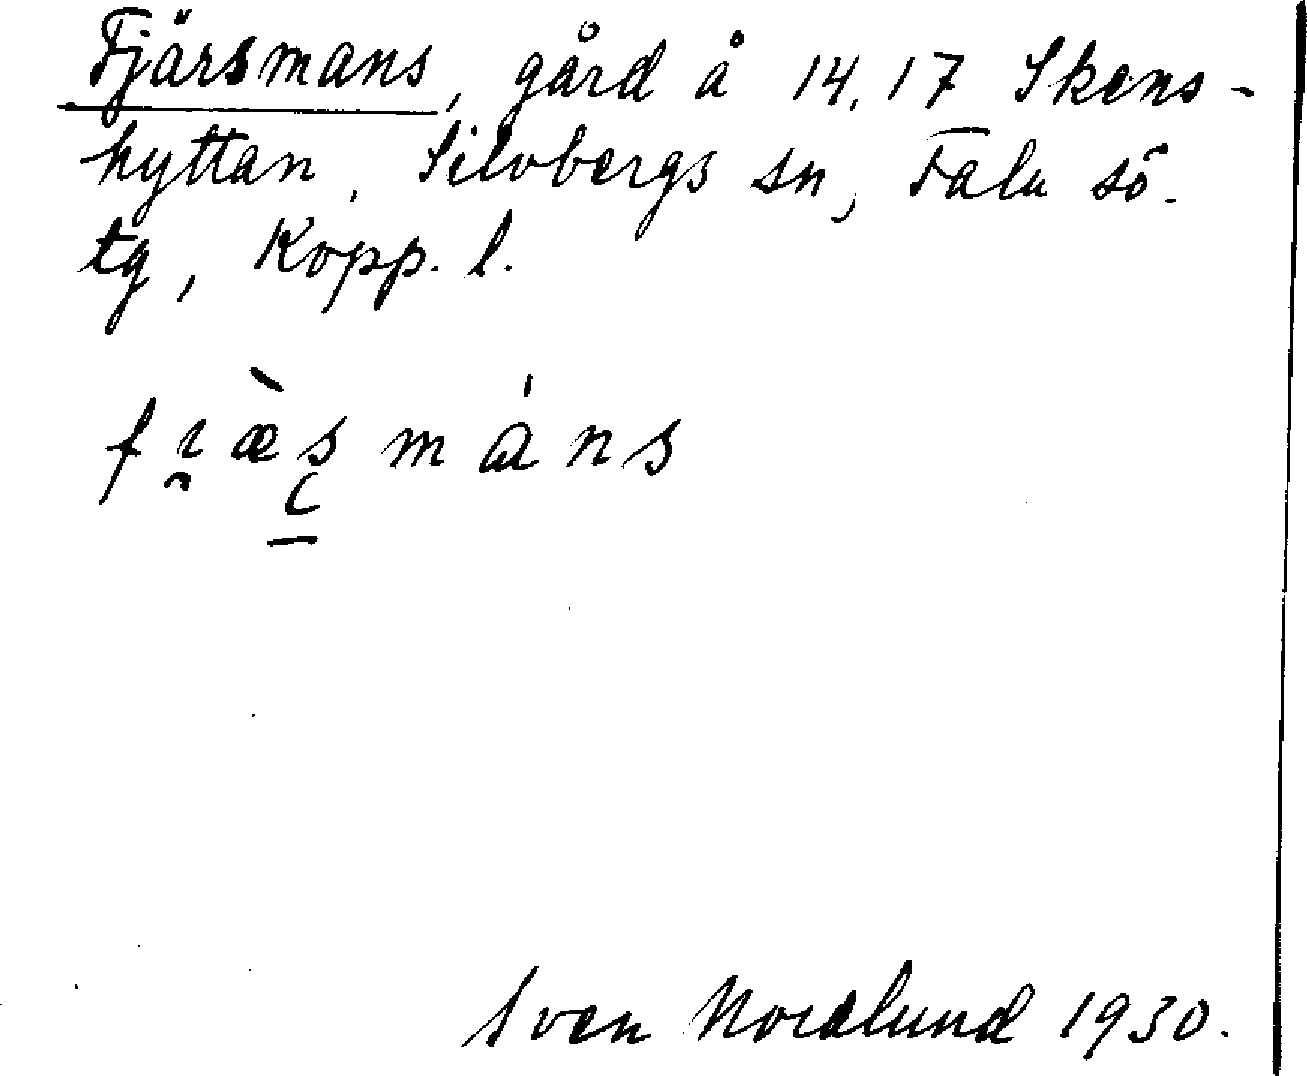 Fjärsmans, gård å 14, 17 Skens-
hyttan, Silvbergs sn, Falu sö.
tg, Kopp. l.
fı̯æ̀s̨̱máns
Sven Nordlund 1930.